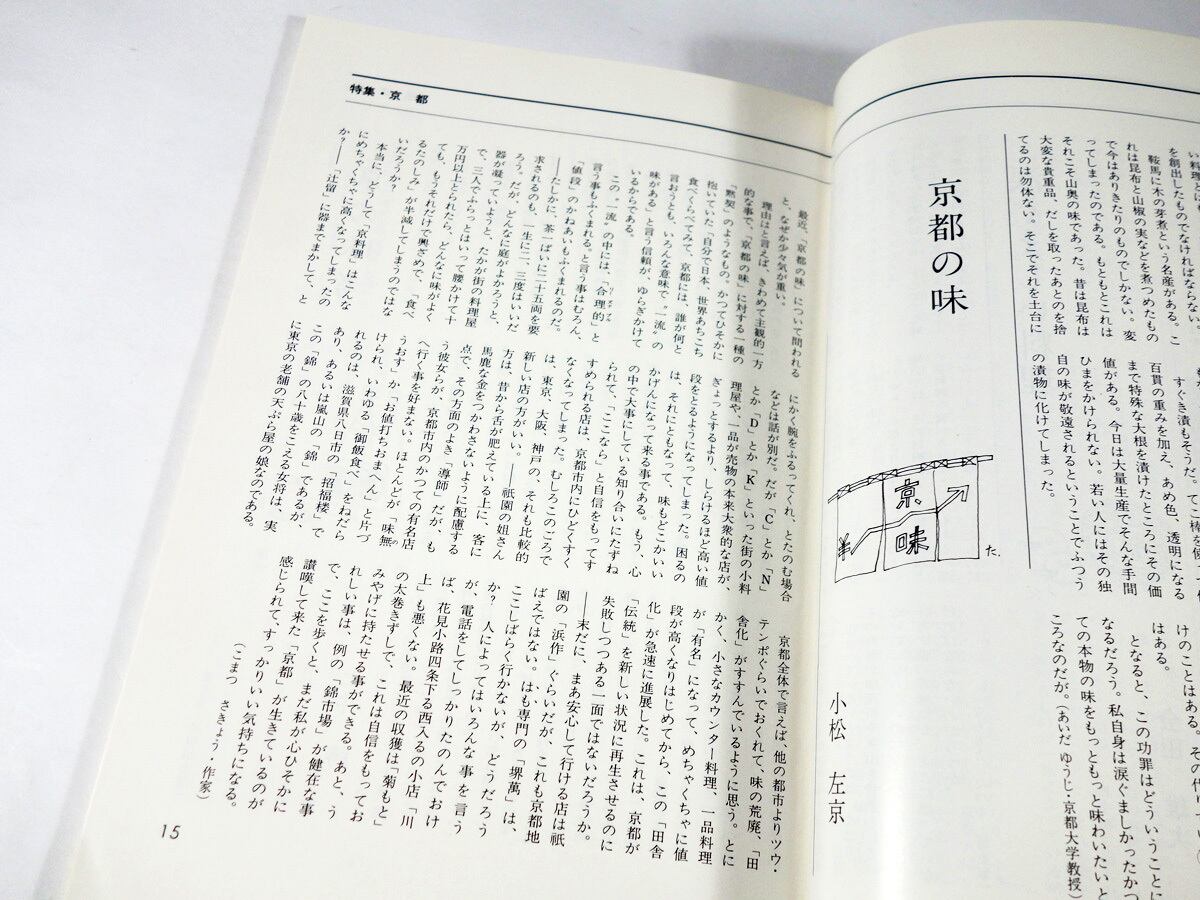 い料理に
を創出したものでなければならない。
鞍馬に木の芽煮という名産がある。こ
れは昆布と山椒の実などを煮つめたもの
で今はありきたりのものでしかない。変
ってしまったのである。もともとこれは
それこそ山奥の味であった。昔は昆布は
大変な貴重品、だしを取ったあとのを捨
てるのは勿体ない。そこでそれを土台に
すぐき漬もそうだ。てこ棒を使
百貫の重みを加え、あめ色、透明にな
まで特殊な大根を漬けたところにその価
値がある。今日は大量生産でそんな手間
ひまをかけられない。若い人にはその独
自の味が敬遠されるということでふつう
の漬物に化けてしまった。
けのことはある。その作り
はある。
となると、この功罪はどういうことに
なるだろう。私自身は涙ぐましかったかつ
ての本物の味をもっともっと味わいたいと
ころなのだが。(あいだ ゆうじ・京都大学教授)
京都の味
小松 左京
京
味
¥
た.
特集・京 都
最近、「京都の味」について問われる
と、なぜか少々気が重い。
理由はと言えば、きわめて主観的一方
的な事で、「京都の味」に対する一種の
「黙契」のようなもの。かつてひそかに
抱いていた「自分で日本、世界あちこち
食べくらべてみて、京都には、誰が何と
言おうとも、いろんな意味で、一流」の
味がある」と言う信頼が、ゆらぎかけて
いるからである。
この「一流」の中には、「合理的」と
言う事もふくまれる。と言う事はむろん、
「値段」のかねあいもふくまれるのだ。
――たしかに、茶一ぱいに二十五両を要
求されるのも、一生に二、三度はいいだ
ろう。だが、どんなに庭がよかろうと、
器が凝っていようと、たかが街の料理屋
で、三人でふらっとはいって腰かけて十
万円以上とられたら、どんなに味がよく
ても、もうそれだけで興ざめで、「食べ
るたのしみ」が半減してしまうのではな
いだろうか?
本当に、どうして「京料理」はこんな
にめちゃくちゃに高くなってしまったの
か?――「辻留」に器までまかして、と
にかく腕をふるってくれ、とたのむ場合
などは話が別だ。だが「C」とか「N」
とか「D」とか「K」といった街の小料
理屋や、一品が売物の本来大衆的な店が、
ぎょっとするより、しらけるほど高い値
段をとるようになってしまった。困るの
は、それにともなって、味もどこかいい
かげんになって来る事である。もう、心
の中で大事にしている知り合いにたずね
られて、「ここなら」と自信をもってす
すめられる店は、京都市内にひどくすく
なくなってしまった。むしろこのごろで
は、東京、大阪、神戸の、それも比較的
新しい店の方がいい。――祇園の姐さん
方は、昔から舌が肥えている上に、客に
馬鹿な金をつかわさないように配慮する
点で、その方面のよき「導師」だが、も
う彼女らが、京都市内のかつての有名店
へ行く事を好まない。ほとんどが「味無
うおす」か「お値打ちおまへん」と片づ
けられ、いわゆる「御飯食べ」をねだら
れるのは、滋賀県八日市の「招福楼」で
あり、あるいは嵐山の「錦」であるが、
この「錦」の八十歳をこえる女将は、実
に東京の老舗の天ぷら屋の娘なのである。
京都全体で言えば、他の都市よりツウ・
テンポぐらいでおくれて、味の荒廃、「田
舎化」がすすんでいるように思う。とに
かく、小さなカウンター料理、一品料理
が「有名」になって、めちゃくちゃに値
段が高くなりはじめてから、この「田舎
化」が急速に進展した。これは、京都が
「伝統」を新しい状況に再生させるのに
失敗しつつある一面ではないだろうか。
――末だに、まあ安心して行ける店は祇
園の「浜作」ぐらいだが、これも京都地
ばえではない。はも専門の「堺萬」は、
ここしばらく行かないが、どうだろう
か? 人によってはいろんな事を言う
が、電話をしてしっかりたのんでおけ
ば、花見小路四条下る西入るの小店「川
上」も悪くない。最近の収獲は「菊もと」
の太巻きずしで、これは自信をもってお
みやげに持たせる事ができる。あと、う
れしい事は、例の「錦市場」が健在な事
で、ここを歩くと、まだ私が心ひそかに
讃嘆して来た「京都」が生きているのが
感じられて、すっかりいい気持ちになる。
(こまつ さきょう・作家)
15